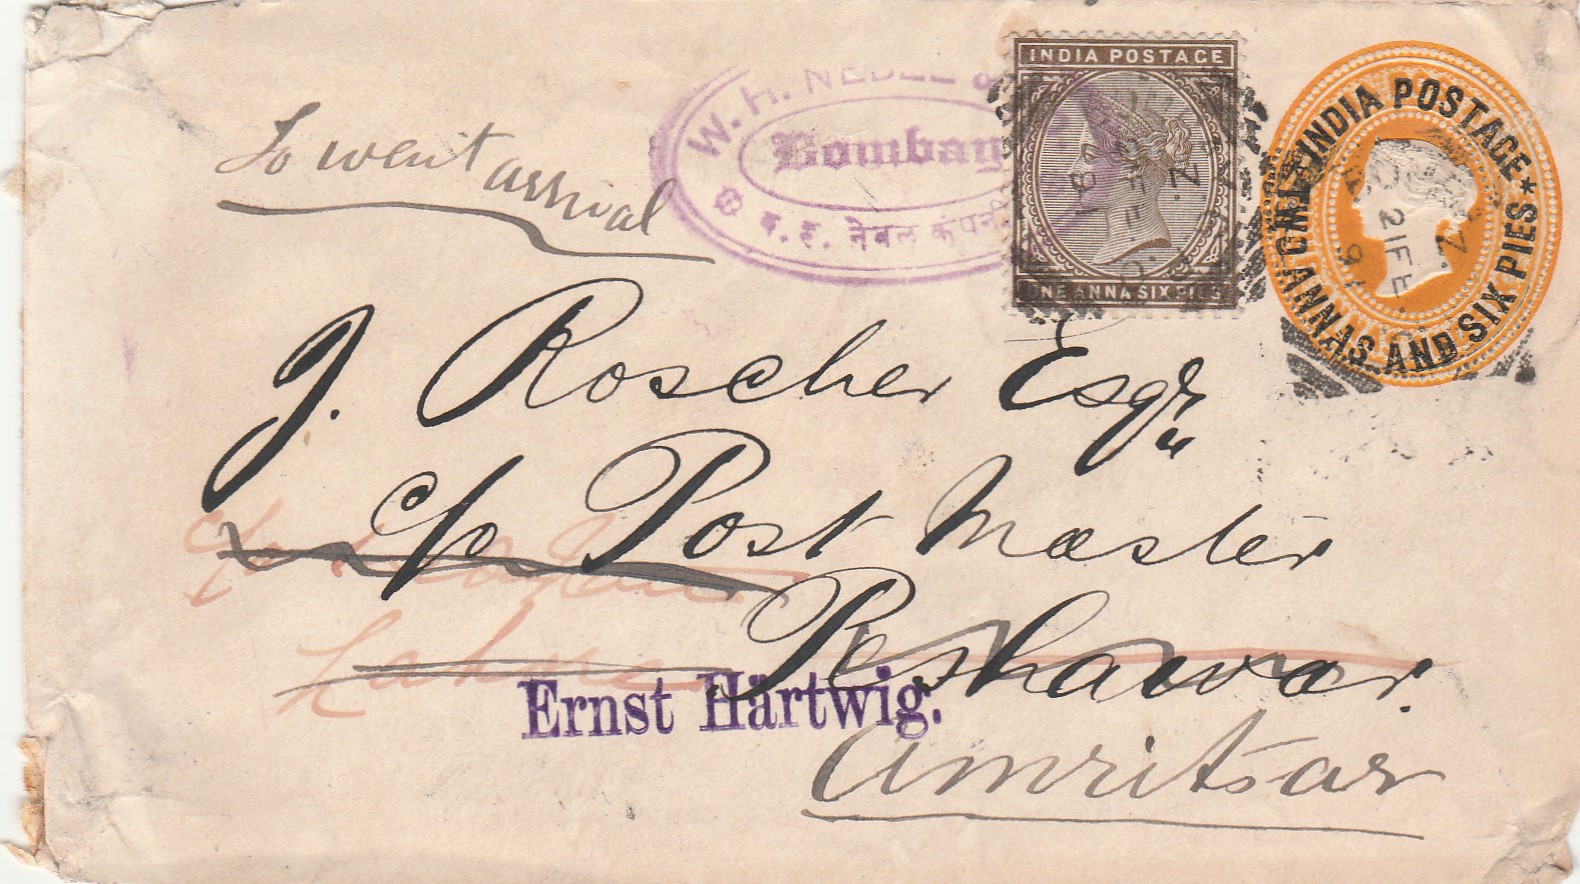 To went arrival
W. H. NEBEL &
Bombay
व. ह. नेबल कंपनी
INDIA POSTAGE
ONE ANNA SIX PIES
INDIA POSTAGE
ANNAS AND SIX PIES
21 FE
91
J. Roscher Esqr
c/o Post Master
Peshawar.
Lahore
Ernst Härtwig.
Amritsar